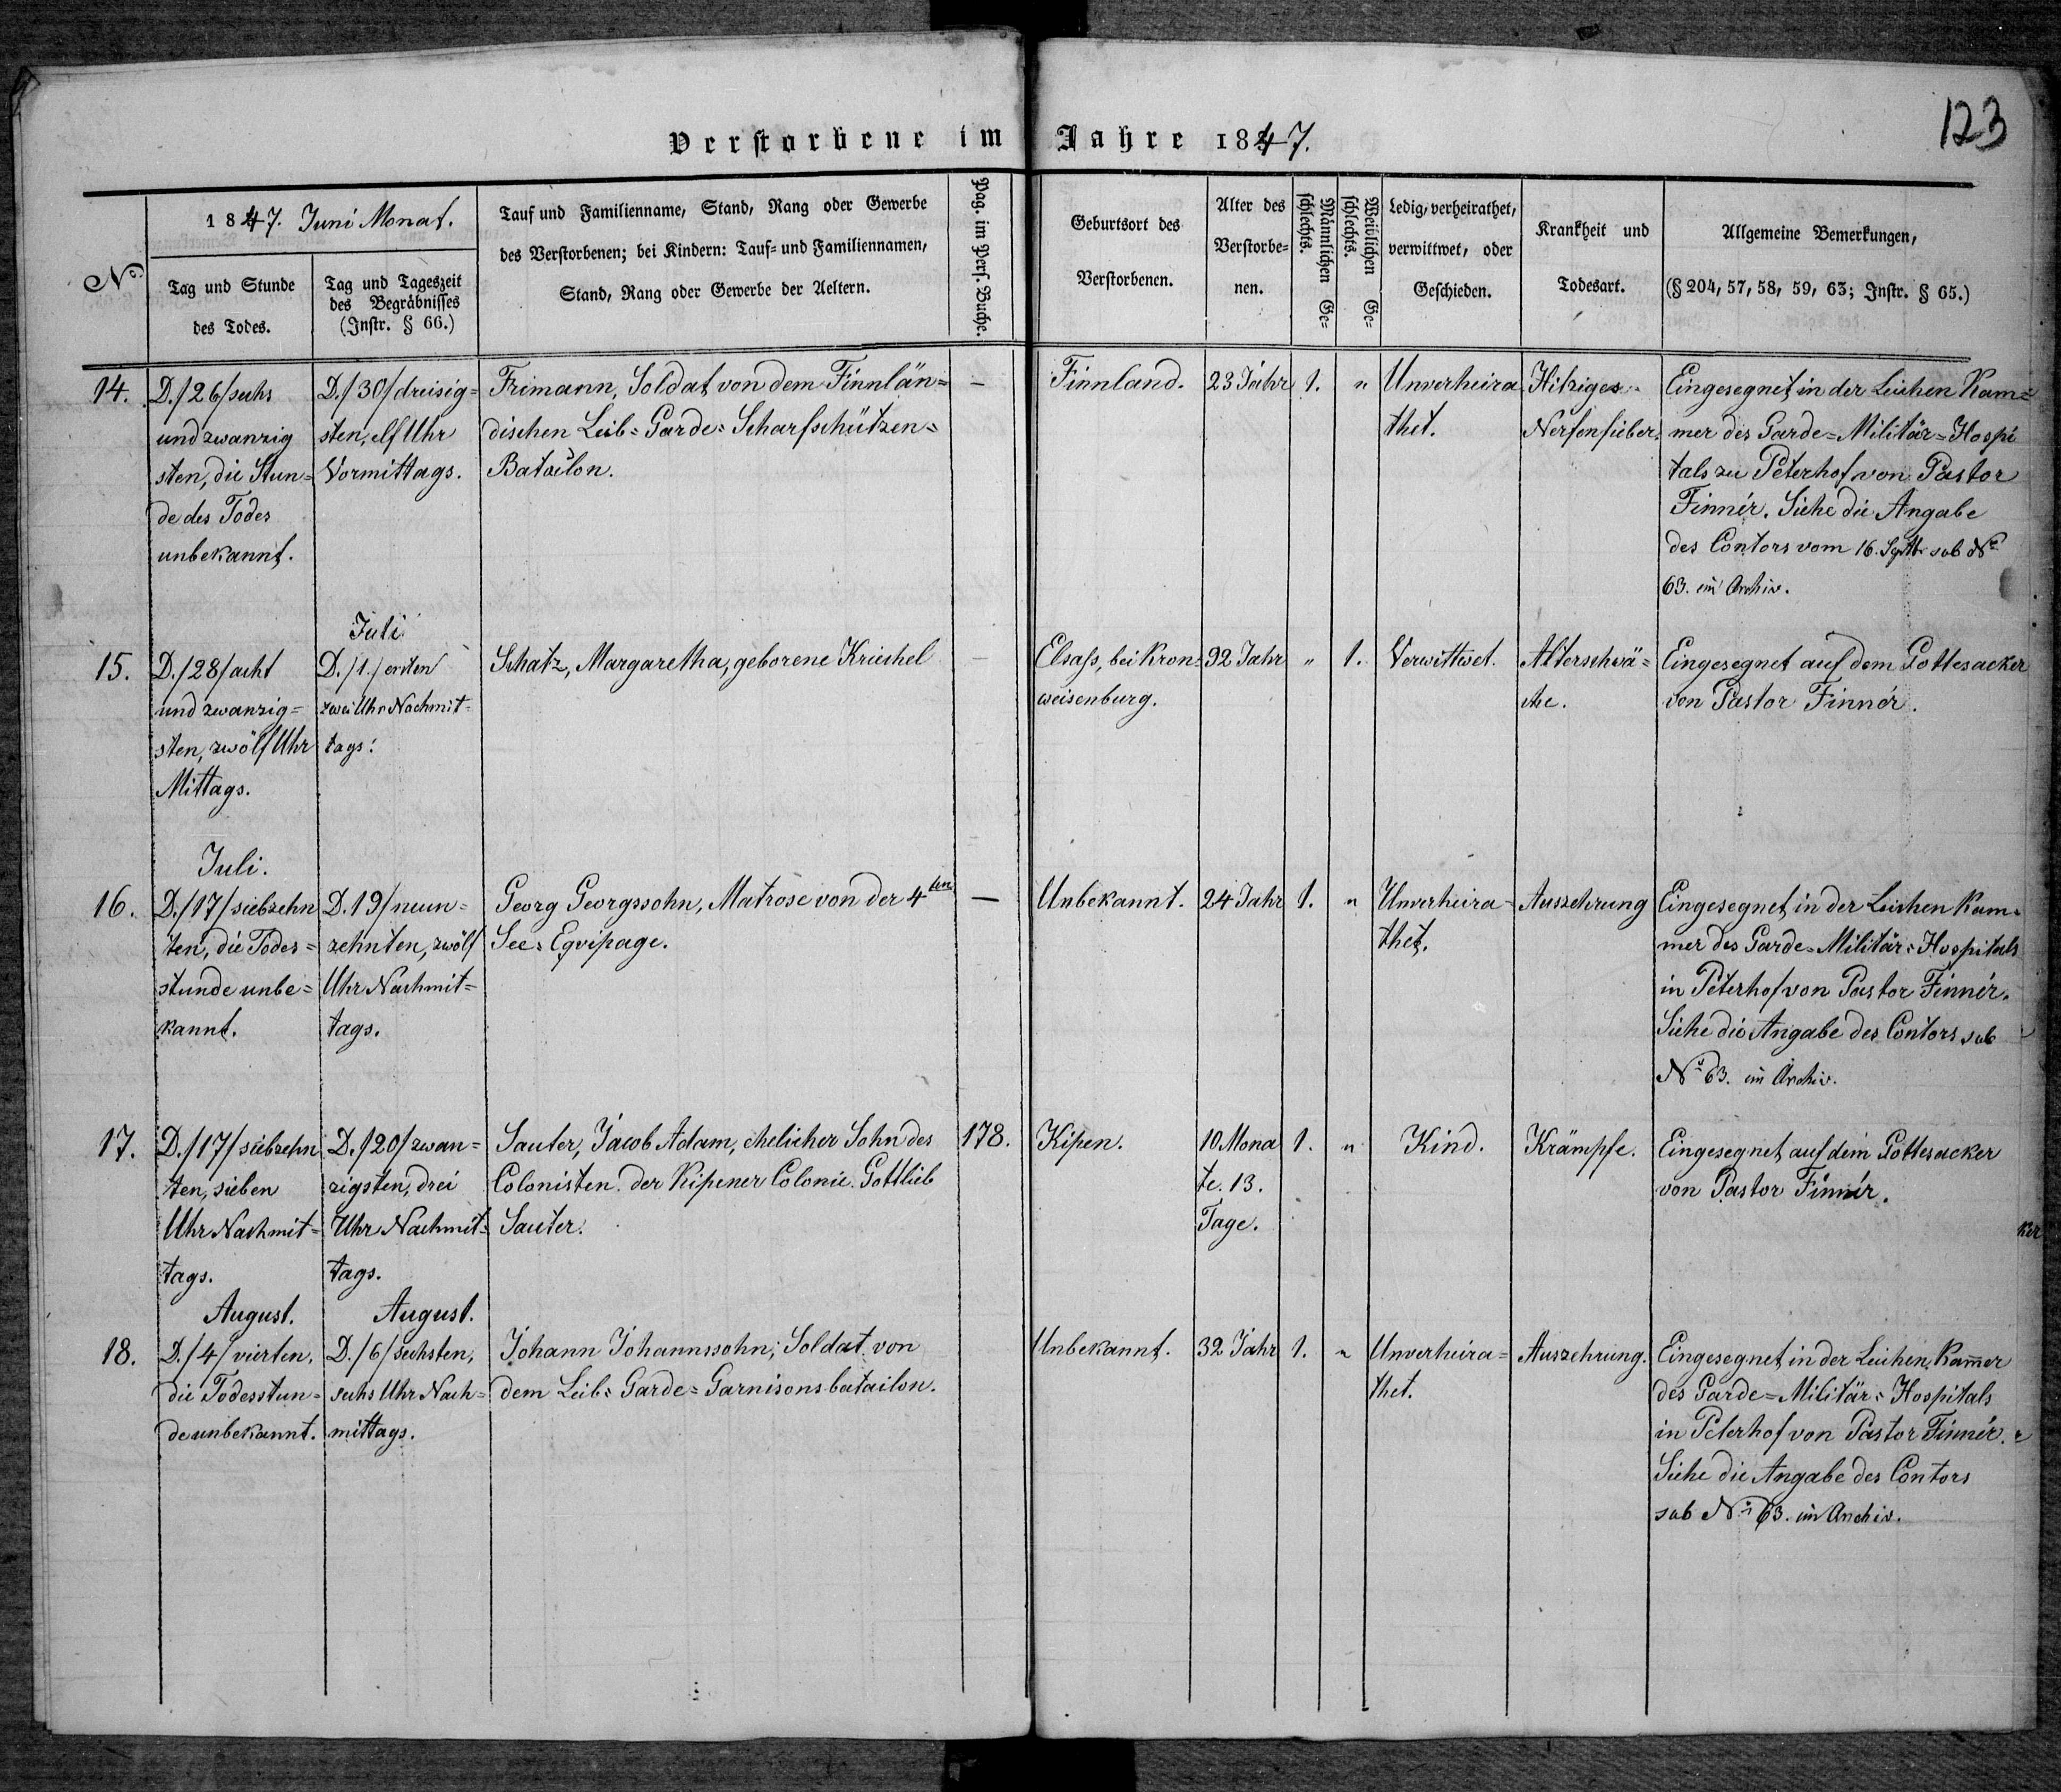 123
Verstorbene im Jahre 1847.
No
1847. Juni Monat.
Tag und Stunde
des Todes.
Tag und Tageszeit
des Begräbnisses
(Instr. § 66.)
Tauf und Familienname, Stand, Rang oder Gewerbe
des Verstorbenen; bei Kindern: Tauf- und Familiennamen,
Stand, Rang oder Gewerbe der Aeltern.
Pag. im Pers. Buche.
Geburtsort des
Verstorbenen.
Alter des
Verstorbe-
nen.
Männlichen Ge-
schlechts.
Weiblichen Ge-
schlechts.
Ledig, verheirathet,
verwittwet, oder
Geschieden.
Krankheit und
Todesart.
Allgemeine Bemerkungen,
(§ 204, 57, 58, 59, 63; Instr. § 65.)
14.
D. /26/ sechs
und zwanzig
sten, die Stun=
de des Todes
unbekannt.
D. /30/ dreisig=
sten, elf Uhr
Vormittags.
Frimann, Soldat von dem Finnlän=
dischen Leib=Garde=Scharfschützen=
Batailon.
—
Finnland.
23 Jahr
1.
"
Unverheira
thet.
Hitziges
Nerfenfieber.
Eingesegnet in der Leichen Kam=
mer des Garde=Militär=Hospi
tals zu Peterhof von Pastor
Finnér. Siehe die Angabe
des Contors vom 16. Septbr sub No
63. im Archiv.
15.
D. /28/ acht
und zwanzig=
sten, zwölf Uhr
Mittags.
Juli
D. /1./ ersten
zwei Uhr Nachmit=
tags.
Schatz, Margaretha, geborene Krieshel
—
Elsaß, bei Kron=
weisenburg.
92 Jahr
"
1.
Verwittwet.
Alterschwä=
che.
Eingesegnet auf dem Gottesacker
von Pastor Finnér.
16.
Juli.
D. /17/ siebzehn
ten, die Todes=
stunde unbe=
kannt.
D. 19/ neun=
zehnten, zwölf
Uhr Nachmit=
tags.
Georg Georgssohn, Matrose von der 4ten
See=Eqvipage.
—
Unbekannt.
24 Jahr
1.
"
Unverheira=
thet.
Auszehrung
Eingesegnet in der Leichen Kam=
mer des Garde=Militär=Hospitals
in Peterhof von Pastor Finnér.
Siehe die Angabe des Contors sub
No 63. im Archiv.
17.
D. /17/ siebzehn
ten, sieben
Uhr Nachmit=
tags.
D. /20/ zwan=
zigsten, drei
Uhr Nachmit=
tags.
Sauter, Jacob Adam, ehelicher Sohn des
Colonisten der Kipener Colonie Gottlieb
Sauter.
178.
Kipen.
10. Mona
te. 13.
Tage.
1.
"
Kind.
Krämpfe.
Eingesegnet auf dem Gottesacker
von Pastor Finnér.
ker
18.
August.
D. /4/ vierten,
die Todesstun=
de unbekannt.
August.
D. /6/ sechsten,
sechs Uhr Nach=
mittags.
Johann Johannssohn, Soldat von
dem Leib=Garde=Garnisonsbatailon.
Unbekannt.
32 Jahr
1.
"
Unverheira=
thet.
Auszehrung.
Eingesegnet in der Leichen Kam̄er
des Garde=Militär=Hospitals
in Peterhof von Pastor Finnér.
Siehe die Angabe des Contors
sub No 63. im Archiv.